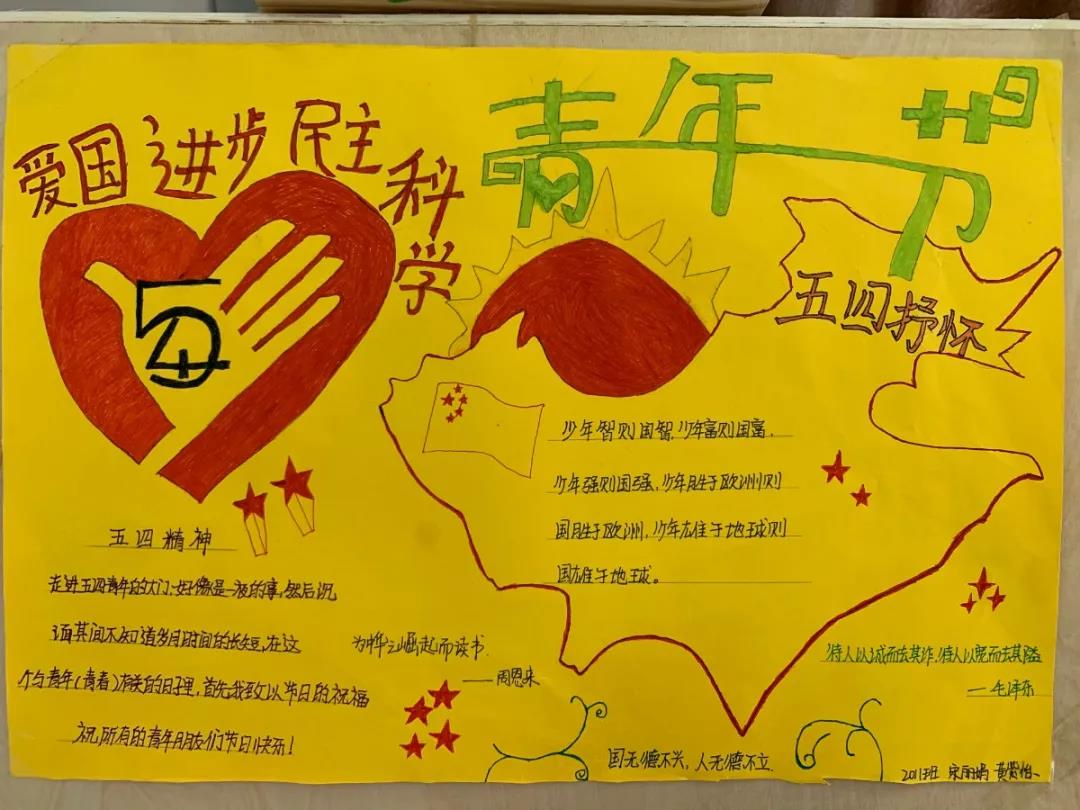 爱国 进步 民主 科学
青年节
五四
五四抒怀
少年智则国智,少年富则国富,
少年强则国强,少年胜于欧洲则
国胜于欧洲,少年雄于地球则
国雄于地球。
五四精神
走进五四青年的大门,好像是一夜的事,然后沉
其间不知道岁月时间的长短,在这
个与青年(青春)有关的日子里,首先我致以节日的祝福
祝所有的青年朋友们节日快乐!
为中华之崛起而读书.
——周恩来
待人以诚而去其诈,待人以宽而去其隘
—毛泽东
国无德不兴,人无德不立.
2011班